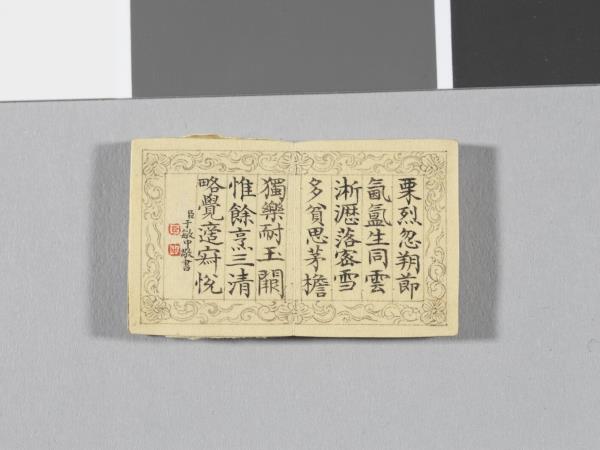 栗烈忽朔節
氤氳生同雲
淅瀝落密雪
多貧思茅檐
獨樂耐玉關
惟餘烹三清
略覺適寤悅
臣于敏中敬書